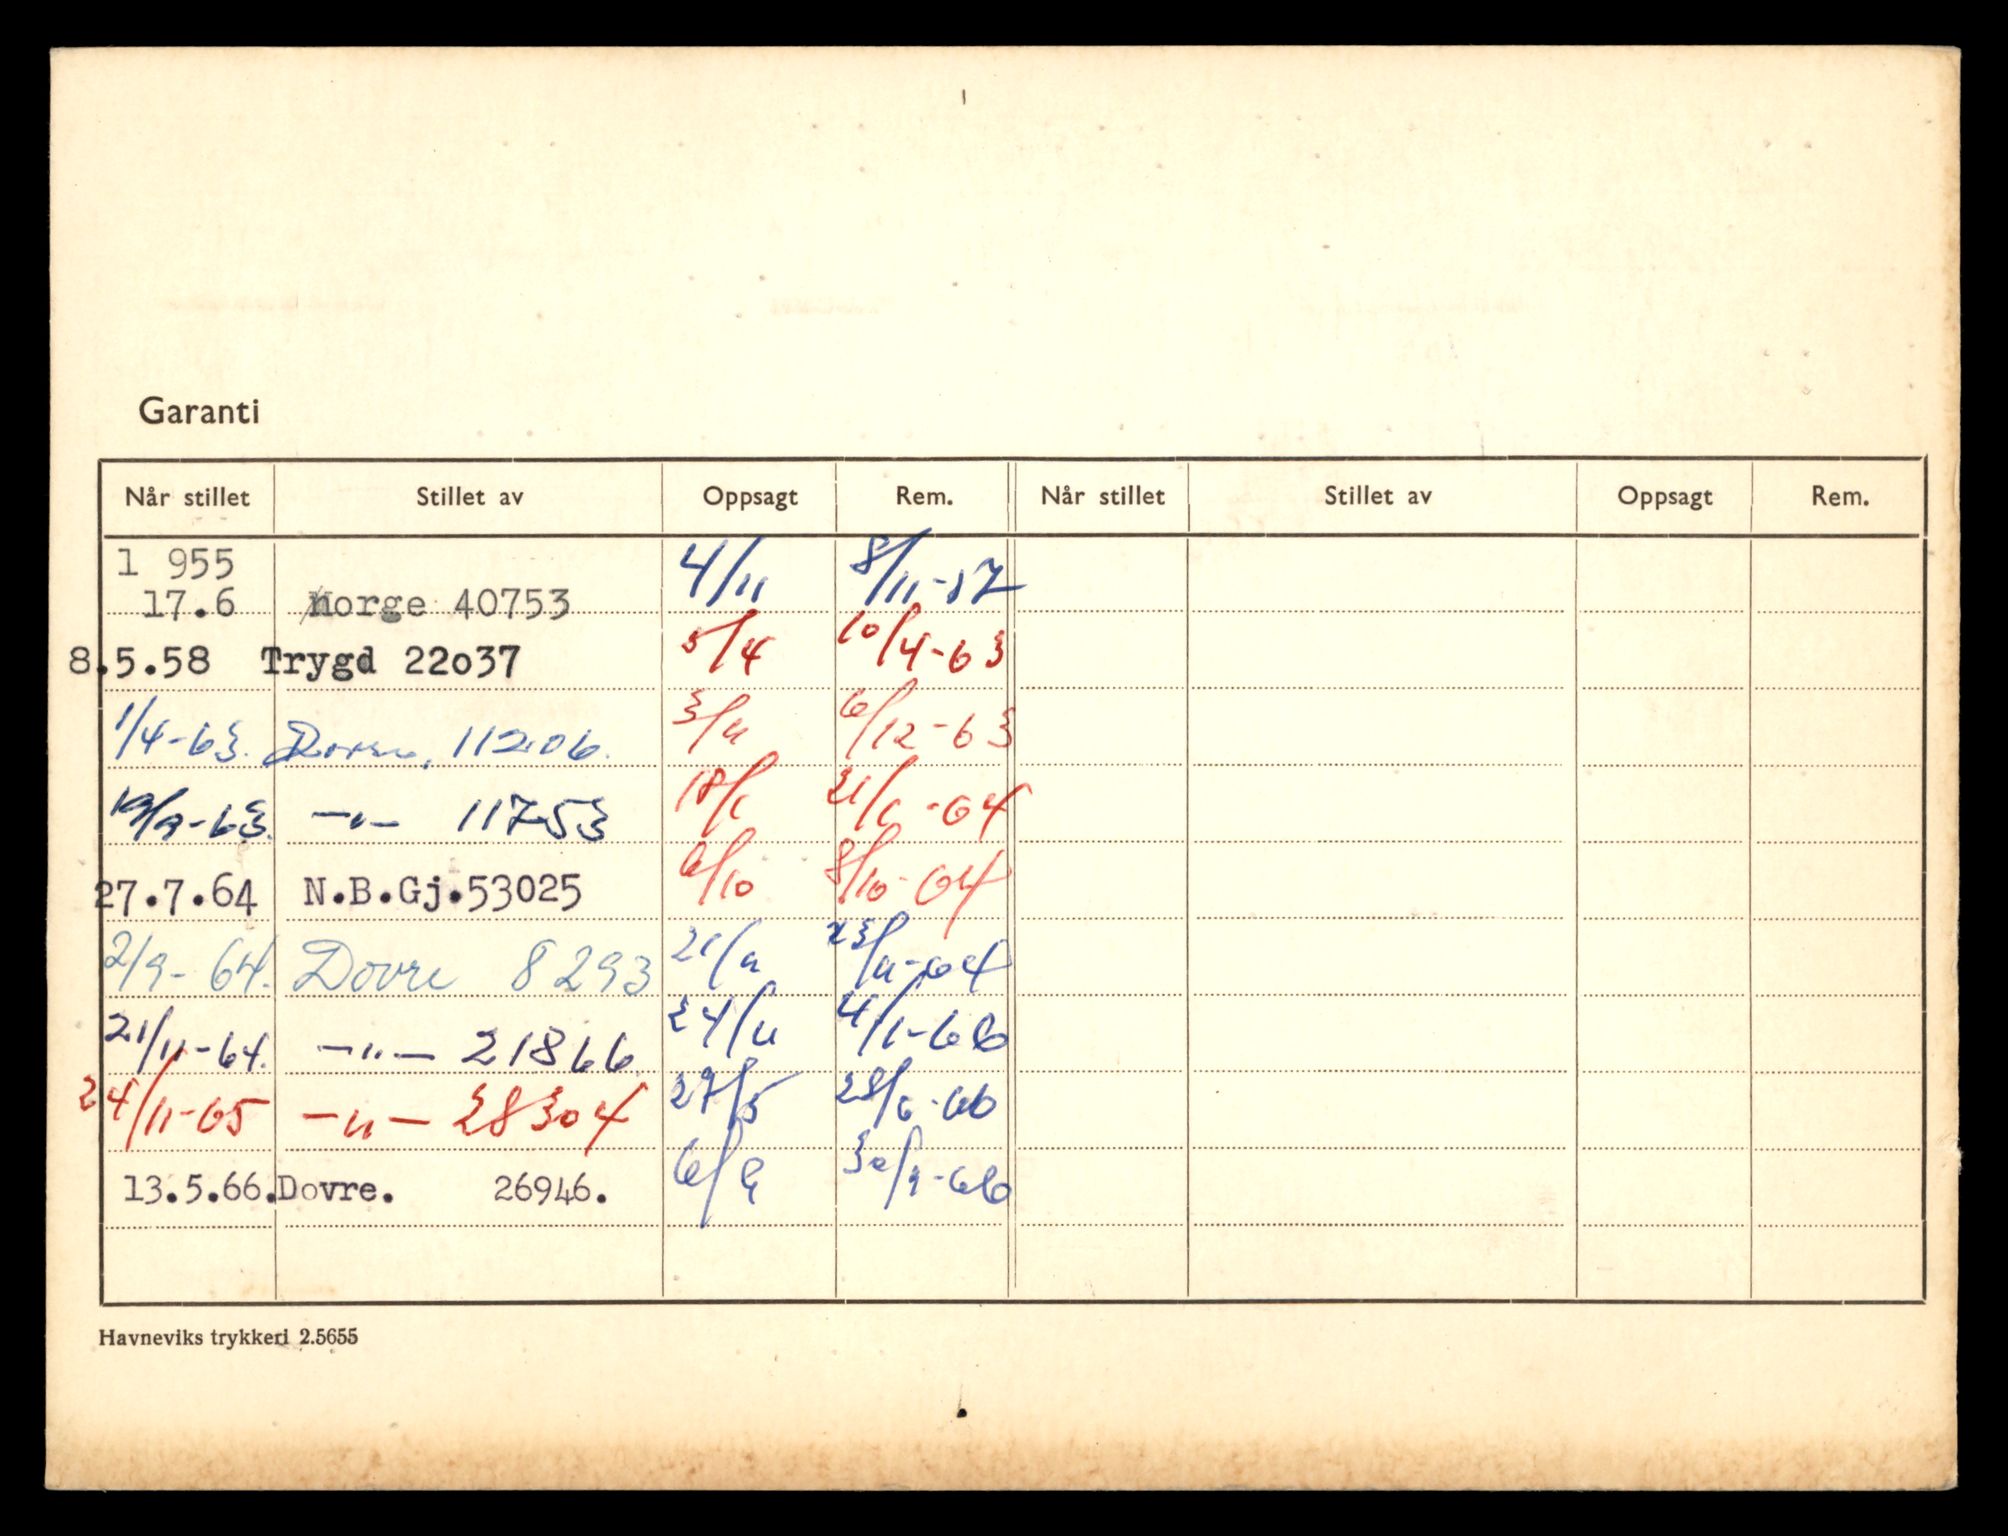 Garanti
Når stillet Stillet av Oppsagt Rem. Når stillet Stillet av Oppsagt Rem.
1 955
17.6 Norge 40753 4/11 8/11-57
8.5.58 Trygd 22o37 5/4 10/4-63
1/4-63. Dovre, 11206. 3/12 6/12-63
19/9-63. -"- 11753 18/1 21/1-64
27.7.64 N.B.Gj.53025 6/10 8/10-64
2/9-64. Dovre 8293 21/11 23/11-64
21/11-64. -"- 21866 24/11 4/1-66
24/11-65 -"- 28304 27/5 28/6-66
13.5.66. Dovre. 26946. 6/9 30/9-66
Havneviks trykkeri 2.5655